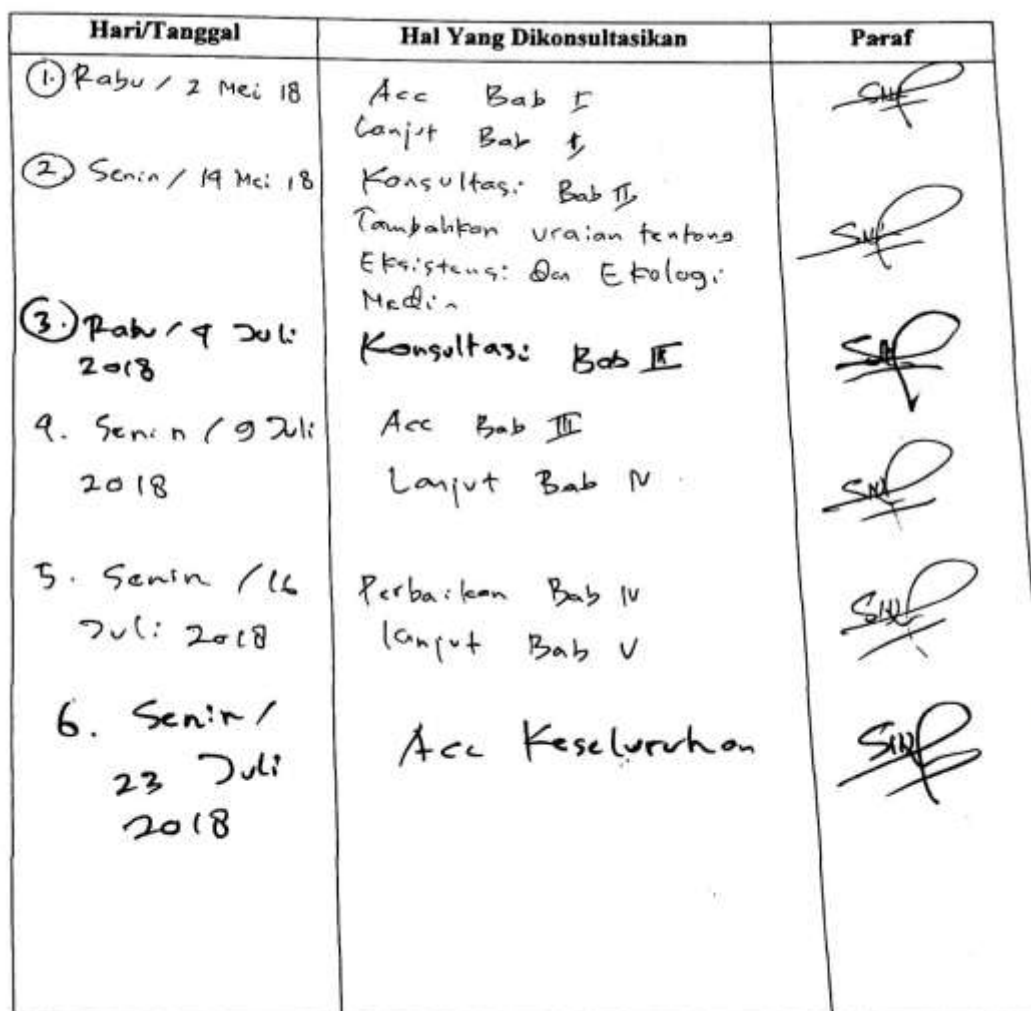 Hari/Tanggal Hal Yang Dikonsultasikan Paraf
1. Rabu / 2 Mei 18 Acc Bab I
Lanjut Bab
2. Senin / 14 Mei 18 Konsultasi Bab II
Tambahkan uraian tentang
Eksistensi dan Ekologi
Media
3. Rabu / 4 Juli Konsultasi Bab
2018
4. Senin / 9 Juli Acc Bab III
2018 Lanjut Bab IV
5. Senin / 16 Perbaikan Bab IV
Juli 2018 lanjut Bab V
6. Senin / Acc Keseluruhan
23 Juli
2018